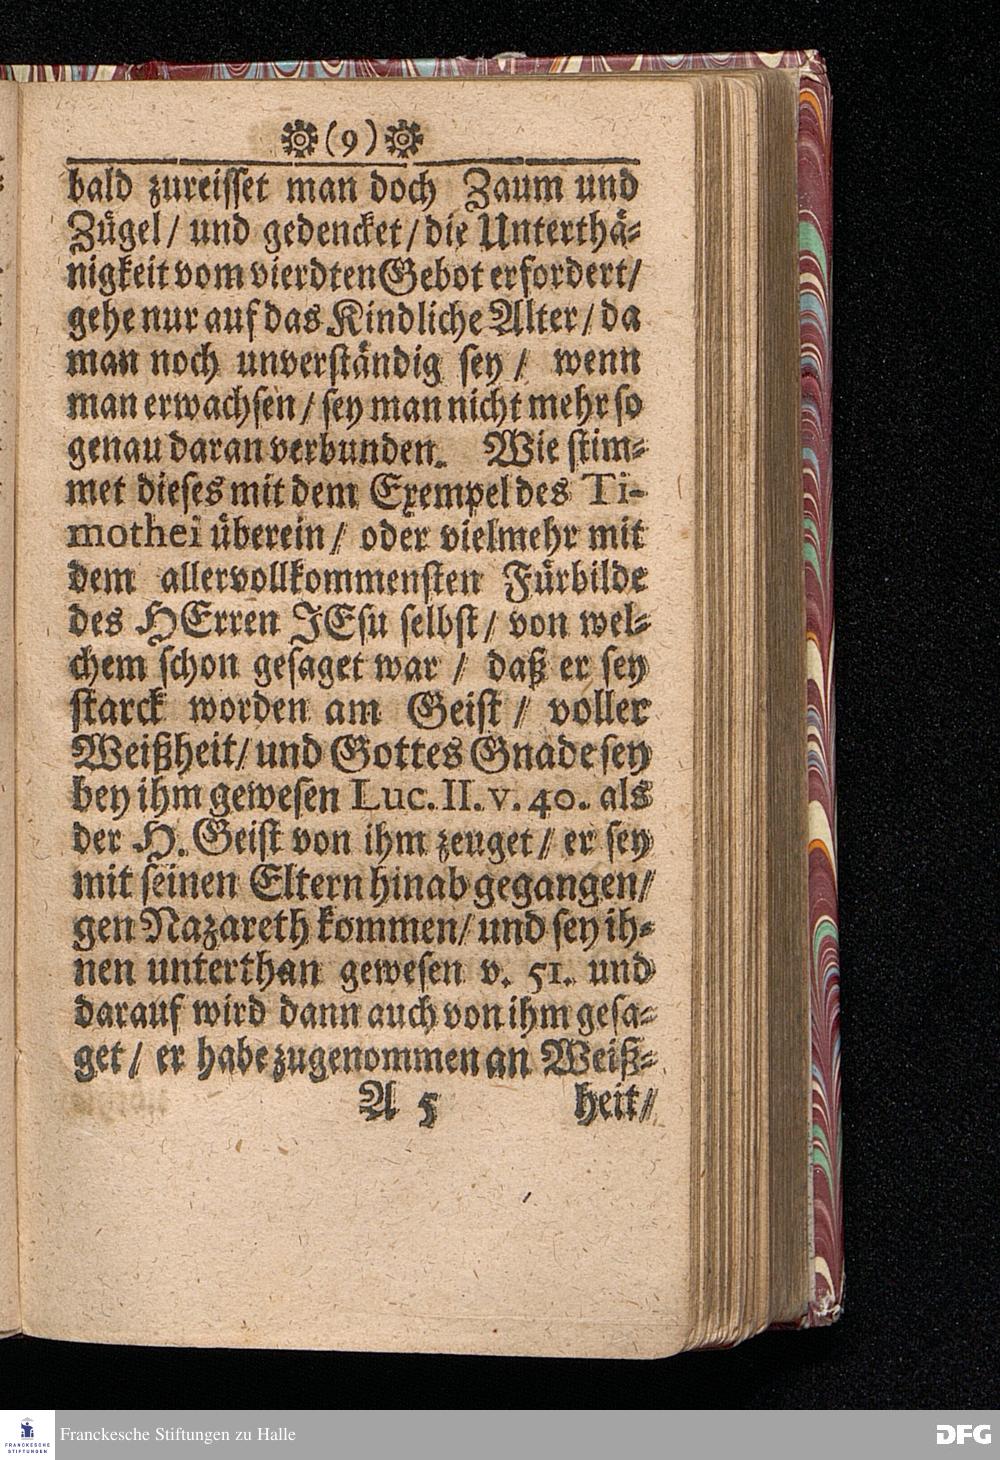 (9)
bald zureisset man doch Zaum und
Zügel/ und gedencket/ die Unterthä-
nigkeit vom vierdten Gebot erfordert/
gehe nur auf das Kindliche Alter/ da
man noch unverständig sey/ wenn
man erwachsen/ sey man nicht mehr so
genau daran verbunden. Wie stim-
met dieses mit dem Exempel des Ti-
mothei überein/ oder vielmehr mit
dem allervollkommensten Fürbilde
des HErren JEsu selbst/ von wel-
chem schon gesaget war/ daß er sey
starck worden am Geist/ voller
Weißheit/ und Gottes Gnade sey
bey ihm gewesen Luc. II. v. 40. als
der H. Geist von ihm zeuget/ er sey
mit seinen Eltern hinab gegangen/
gen Nazareth kommen/ und sey ih-
nen unterthan gewesen v. 51. und
darauf wird dann auch von ihm gesa-
get/ er habe zugenommen an Weiß-
A 5 heit/
FRANCKESCHE STIFTUNGEN
Franckesche Stiftungen zu Halle
DFG